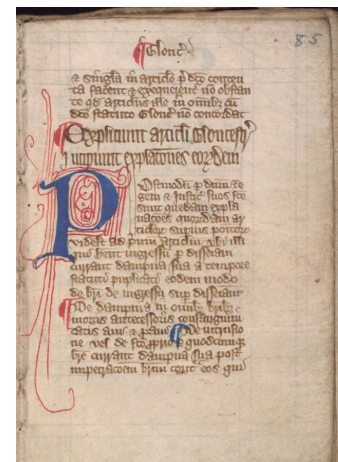 Glouc'
85
& singla in articlo p'dco conten
ta facent & exequerent' no obstan
te qd articlus ille in omibz cu
dco statuto Glouc' no concordat
Expliciunt articli Gloucestr'
Incipiunt explacones eorzdem
Postmodu p dnm re
gem & Justic' suos fce
sunt quedam expla
nacones quorzdam ar
ticlorz supius positorz
videlt ad p'mu articlm ubi illi
qui hent ingressu p disseisam
currant dampna sua a tempore
statuti puplicati eodem modo
de bri de ingressu sup disseisam
De dampnis in omibz bribz
mortis antecessoris consanguini
tatis aui & paui De intrusio
ne vel de fco p'prio p quodcumqz
bre currant dampna sua post
impetracoem bruu cont' eos qui